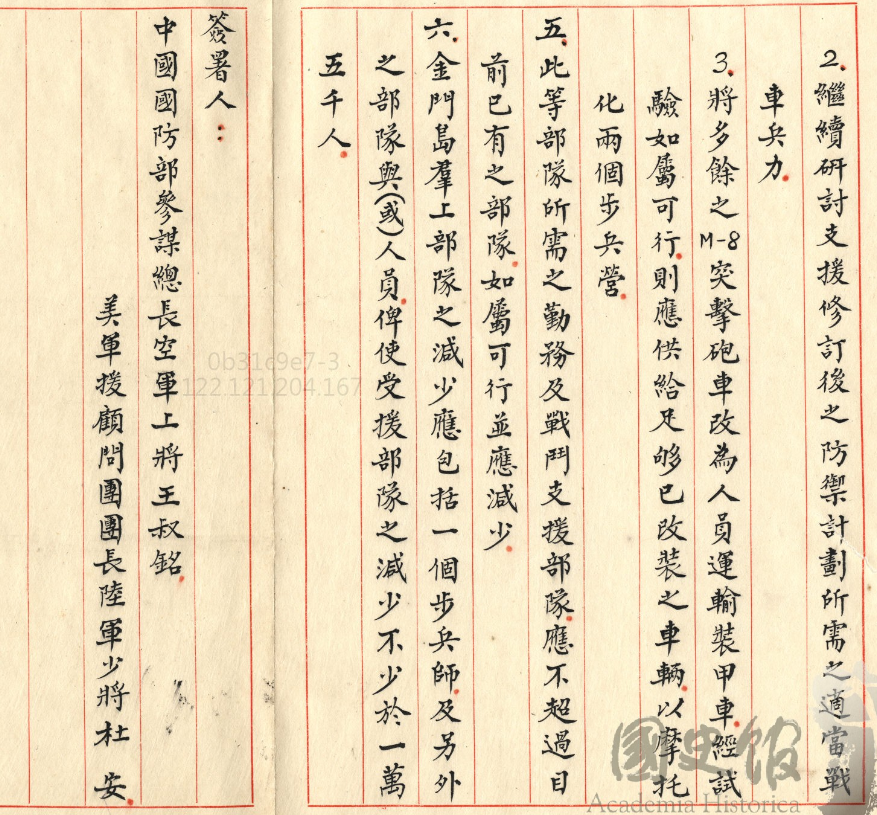 2.繼續研討支援修訂後之防禦計劃所需之適當戰
車兵力.
3.將多餘之M-8突擊砲車改為人員運輸裝甲車.經試
驗如屬可行.則應供給足够已改裝之車輛.以摩托
化兩個步兵營.
五.此等部隊所需之勤務及戰鬥支援部隊.應不超過目
前已有之部隊.如屬可行並應減少.
六.金門島羣上部隊之減少應包括一個步兵師.及另外
之部隊與(或)人員.俾使受援部隊之減少不少於一萬
五千人.
簽署人:
中國國防部參謀總長空軍上將王叔銘.
美軍援顧問團團長陸軍少將杜 安.
0b31c9e7-3
122.121.204.167
國史館
Academia Historica